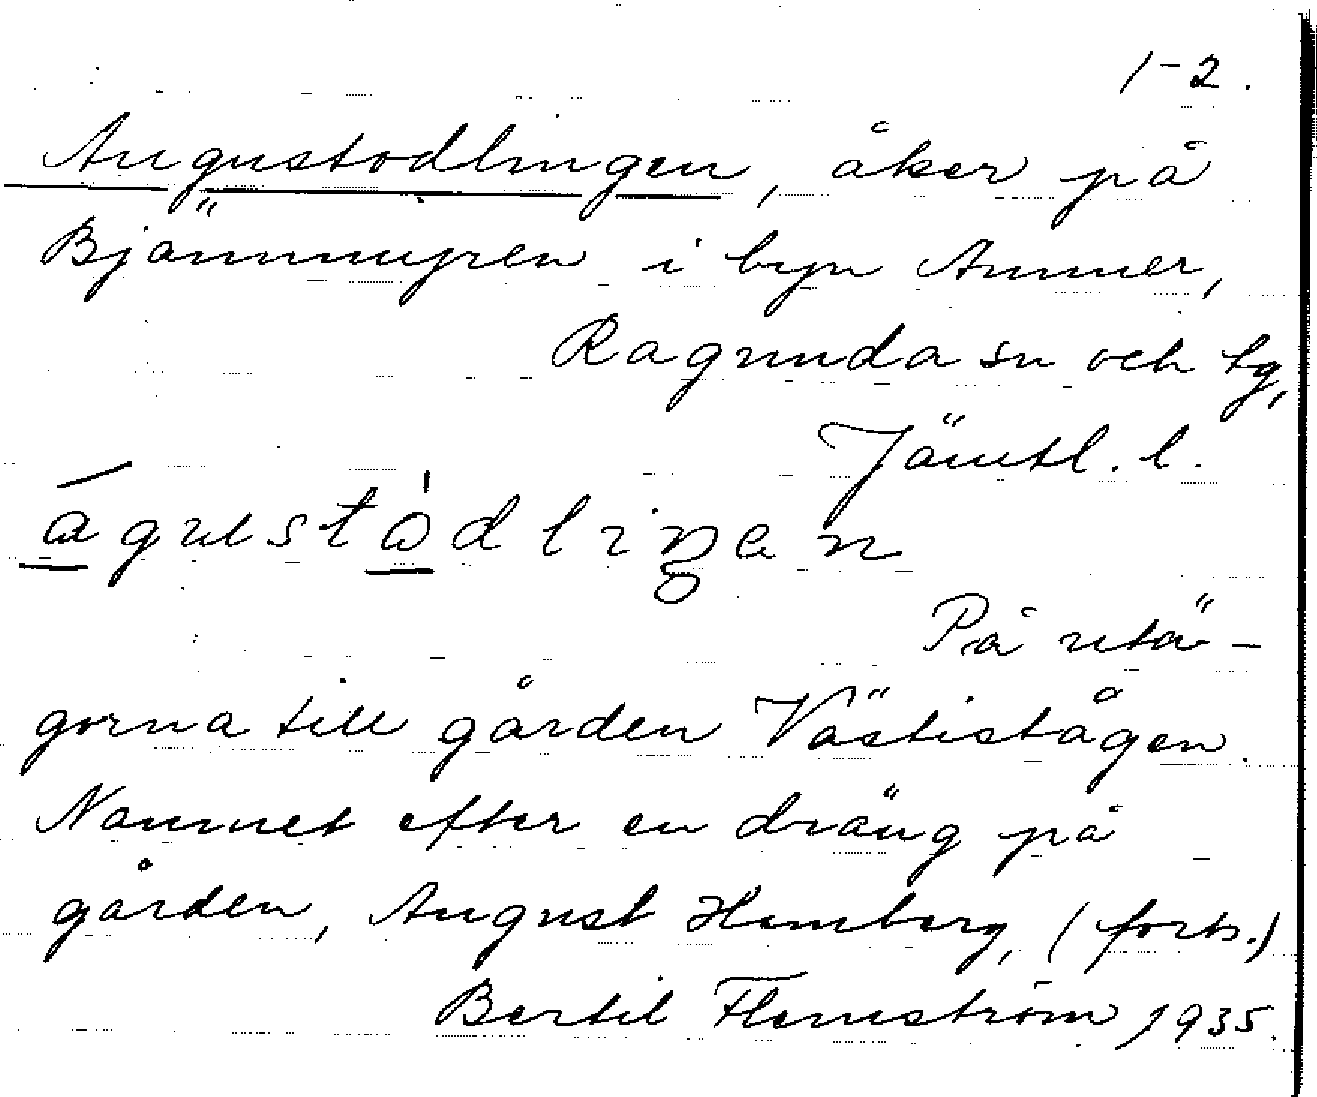 1-2.
Augustodlingen, åker på
Björnmyren i byn Ammer,
Ragunda sn och tg,
Jämtl. l.
águstòdliŋen
På utä-
gorna till gården Västistågen.
Namnet efter en dräng på
gården, August Humberg, (forts.)
Bertil Flemström 1935.